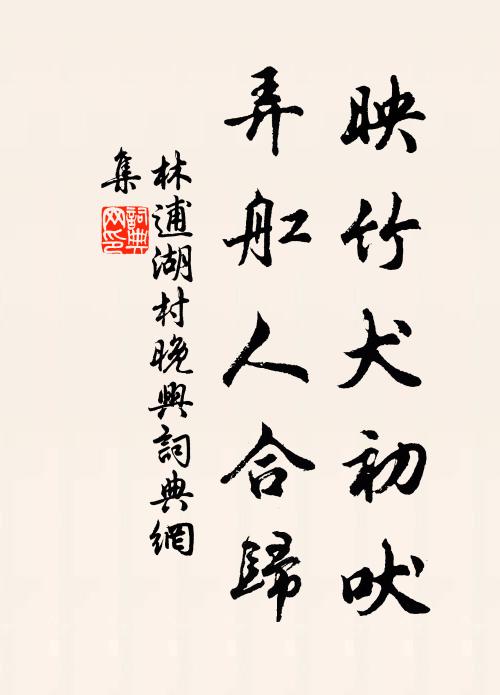 映竹犬初吠
弄舡人合歸
林逋湖村晚興詞典網
集
詞典
网印